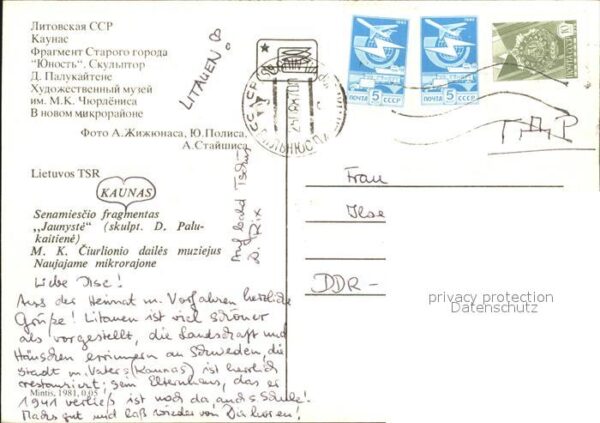 Литовская ССР
Каунас
Фрагмент Старого города
"Юность". Скульптор
Д. Палукайтене
Художественный музей
им. М.К. Чюрлёниса
В новом микрорайоне
Фото А.Жижюнаса, Ю.Полиса,
А.Стайшиса
LITAUEN!
5 ПОЧТА СССР
5 ПОЧТА СССР
Г.Д.Р
Lietuvos TSR
KAUNAS
Senamiesčio fragmentas
„Jaunystė" (skulpt. D. Palu-
kaitienė)
M. K. Čiurlionio dailės muziejus
Naujajame mikrorajone
Auf bald Tschüß
Frau
Ilse
DDR -
privacy protection
Datenschutz
Liebe Ilse!
Aus der Heimat m. Vorfahren herzliche
Grüße! Litauen ist viel schöner
als vorgestellt, die Landschaft und
Häuschen erinnern an Schweden, die
Stadt m. Vaters (Kaunas) ist herrlich
restauriert; sein Elternhaus, das er
1941 verließ ist noch da, auch s. Schule!
Mintis, 1981, 0,05
Machs gut und laß wieder von Dir hören!